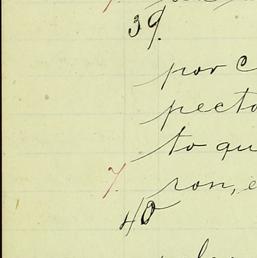 39.
por c
pecto
to qu
7.
ron, e
40